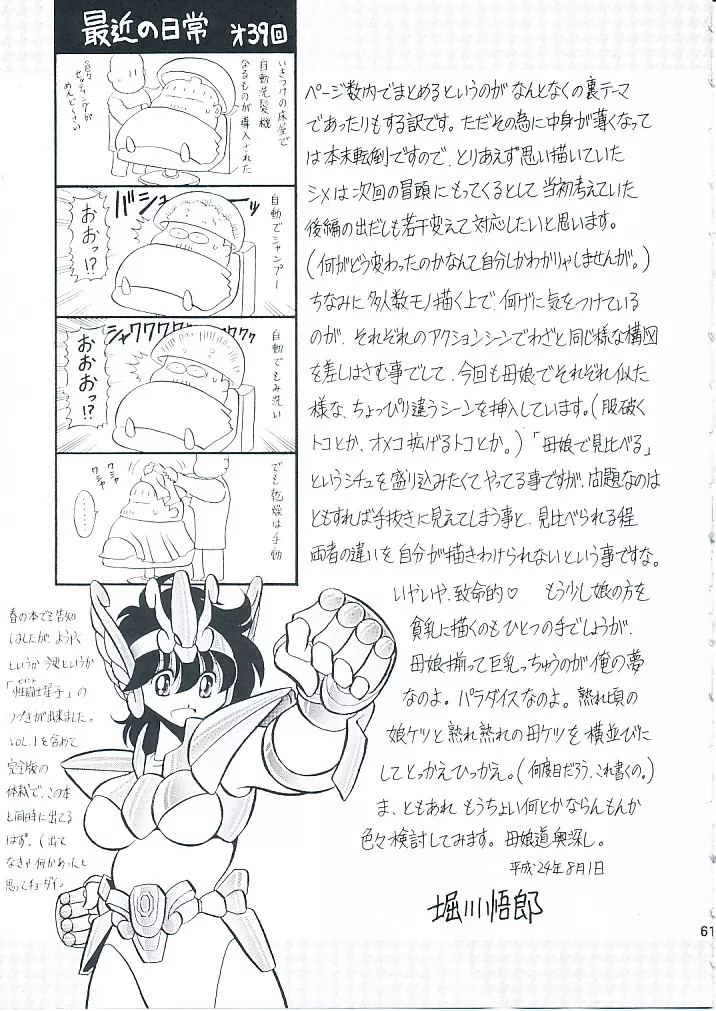 最近の日常 才39回
いきつけの床屋で
自動洗髪機
なるものが導入された
色々
セッティングが
めんどくさい
自動でシャンプー
バシューーーッ
おおっ!?
自動でもみ洗い
シャクワクワクワク
おおおっ!?
でも乾燥は手動
クシャ
クシャ
……
ページ数内でまとめるというのがなんとなくの裏テーマ
であったりもする訳です。ただその為に中身が薄くなって
は本末転倒ですので、とりあえず思い描いていた
シメは次回の冒頭にもってくるとして当初考えていた
後編の出だしも若干変えて対応したいと思います。
(何がどう変わったのかなんて自分しかわかりゃしませんが。)
ちなみに多人数モノ描く上で、何げに気をつけている
のが、それぞれのアクションシーンでわざと同じ様な構図
を差しはさむ事でして、今回も母娘でそれぞれ似た
様な、ちょっぴり違うシーンを挿入しています。(服破く
トコとか、オメコ拡げるトコとか。)「母娘で見比べる」
というシチュを盛り込みたくてやってる事ですが、問題なのは
ともすれば手抜きに見えてしまう事と、見比べられる程
両者の違いを自分が描きわけられないという事ですな。
いやいや、致命的♡ もう少し娘の方を
貧乳に描くのもひとつの手でしょうが、
母娘揃って巨乳っちゅうのが俺の夢
なのよ。パラダイスなのよ。熟れ頃の
娘ケツと熟れ熟れの母ケツを横並びに
してとっかえひっかえ。(何度目だろう、これ書くの。)
ま、ともあれ もうちょい何とかならんもんか
色々検討してみます。母娘道奥深し。
平成24年8月1日
堀川悟郎
春の本でも告知
しましたが、ようやく
というか今更というか
「性闘士星子」の
つづきが出来ました。
VOL.1を含めて
完全版の
体裁で、この本
と同時に出てる
はず。(出て
なきゃ何かあったと
思ってチョーダイ。
61